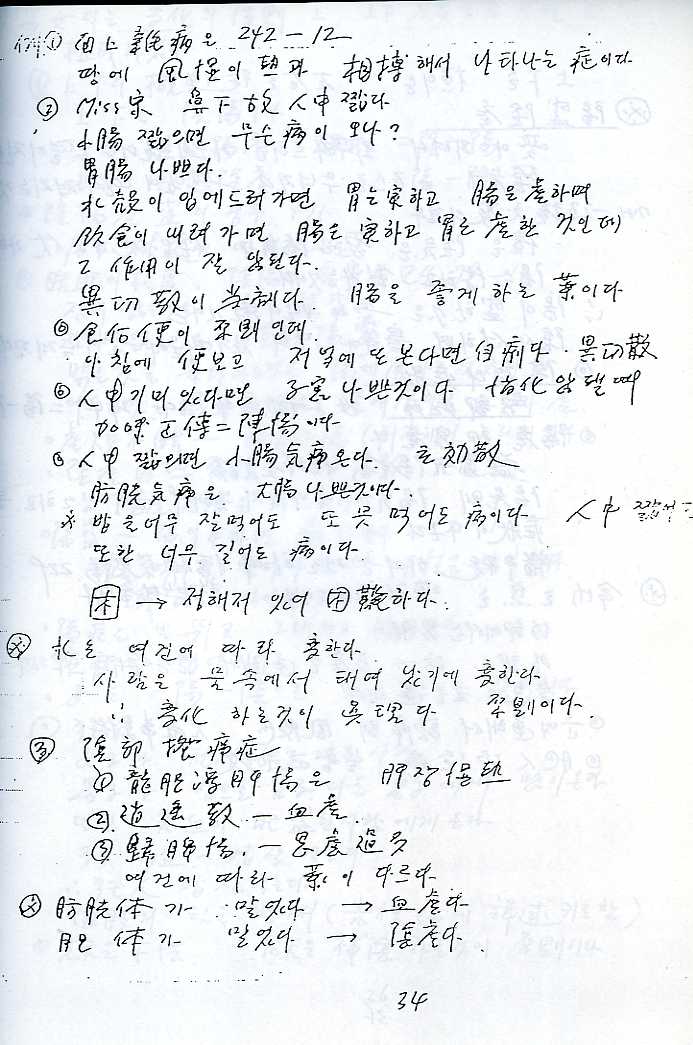 例① 面上雜病은 242-12
땅에 風湿이 熱과 相搏해서 나타나는 症이다
② Miss宋 鼻下 故 人中 짧다
小腸 짧으면 무슨病이 오나?
胃腸 나쁘다.
水穀이 입에드러가면 胃는 實하고 腸은 虛하며
飮食이 내려가면 腸은 實하고 胃는 虛한 것인데
그 作用이 잘 안된다.
異功散이 当剤다. 腸을 좋게 하는 薬이다
食后便이 인데
아침에 便보고 저녁에 또 본다면 異功散
人中기미 있다면 子宮 나쁜것이다 안될때
加味正傳二陳湯이다
人中 짧으면 小腸気痛온다. 立効散
膀胱気痛은 大腸 나쁜것이다.
※ 밥을너무 잘먹어도 또 못 먹어도 病이다 人中
또한 너무 길어도 病이다.
本 → 정해저 있어 困難하다.
※ 水는 여건에 따라 変한다.
사람은 물속에서 태여 낫기에 変한다
∴ 変化 하는것이 다 이다.
③ 陰部 痒症
① 龍胆瀉肝湯은 肝臟湿熱
② 逍遙散 一 血虛.
③ 歸脾湯. 一 思慮過多
여건에 따라 薬이 다르다.
※ 膀胱体가 말았다 → 血虛다
肥体가 말았다 → 陰虛다.
34